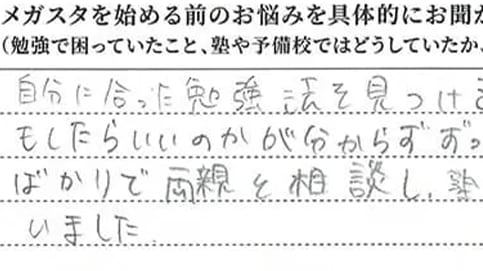 メガスタを始める前のお悩みを具体的にお聞か
(勉強で困っていたこと、塾や予備校ではどうしていたか、
自分に合った勉強法を見つける
もしたらいいのかが分からずずっ
ばかりで両親と相談し、塾
いました